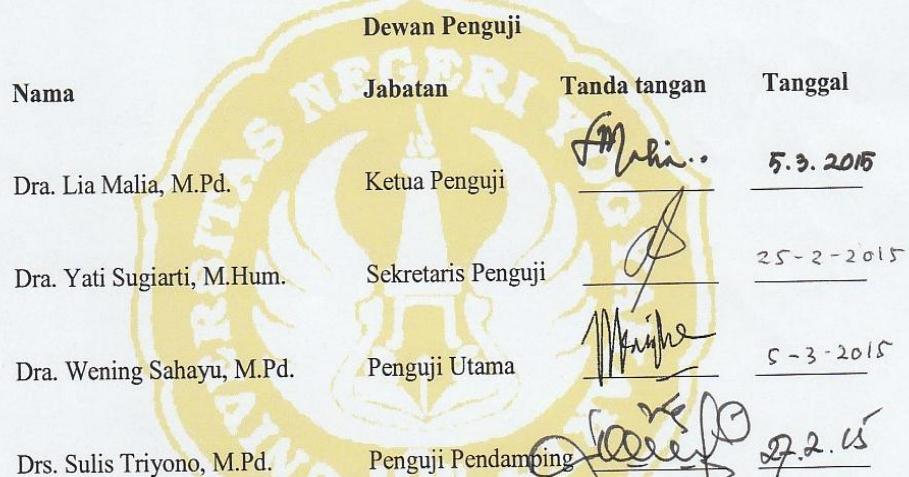 Dewan Penguji
Nama Jabatan Tanda tangan Tanggal
Dra. Lia Malia, M.Pd. Ketua Penguji 5.3.2015
Dra. Yati Sugiarti, M.Hum. Sekretaris Penguji 25-2-2015
Dra. Wening Sahayu, M.Pd. Penguji Utama 5-3-2015
Drs. Sulis Triyono, M.Pd. Penguji Pendamping 27.2.15